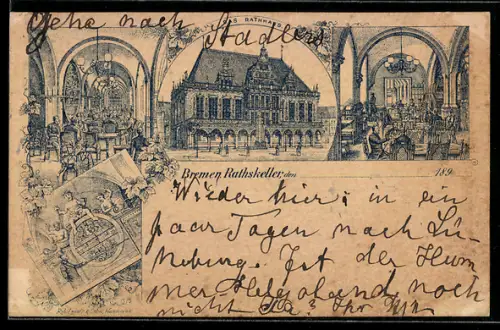 Gehe nach Stadlers
DAS RATHHAUS
Bremen, Rathskeller, den 189
Wieder hier; in ein
paar Tagen nach Lü-
neburg. Ist der Hum
mer Helgoland noch
nicht da? Ihr